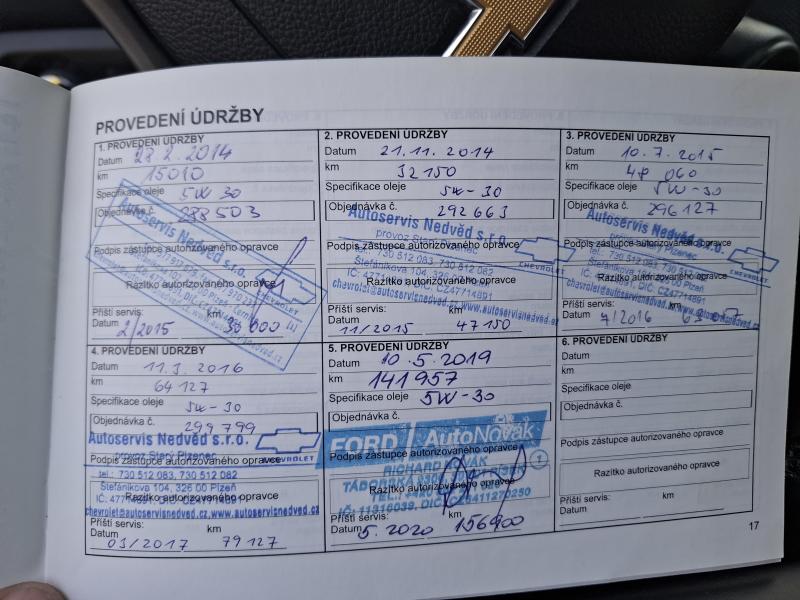 PROVEDENÍ ÚDRŽBY
1. PROVEDENÍ ÚDRŽBY
Datum 28.2.2014
km 15010
Specifikace oleje 5W 30
Objednávka č. 288503
Autoservis Nedvěd s.r.o.
Podpis zástupce autorizovaného opravce
Razítko autorizovaného opravce
CHEVROLET
Příští servis: km
Datum 2/2015 30 000
2. PROVEDENÍ ÚDRŽBY
Datum 21.11.2014
km 32150
Specifikace oleje 5W-30
Objednávka č. 292663
Autoservis Nedvěd s.r.o.
provoz Starý Plzenec
Podpis zástupce autorizovaného opravce
tel.: 730 512 083, 730 512 082
CHEVROLET
Štefánikova 104, 326 00 Plzeň
Razítko autorizovaného opravce
IČ: 47714891, DIČ: CZ47714891
chevrolet@autoservisnedved.cz, www.autoservisnedved.cz
Příští servis: km
Datum 11/2015 47150
3. PROVEDENÍ ÚDRŽBY
Datum 10.7.2015
km 48 060
Specifikace oleje 5W-30
Objednávka č. 296127
Autoservis Nedvěd s.r.o.
provoz Starý Plzenec
Podpis zástupce autorizovaného opravce
tel.: 730 512 083, 730 512 082
CHEVROLET
Štefánikova 104, 326 00 Plzeň
Razítko autorizovaného opravce
IČ: 47714891, DIČ: CZ47714891
Příští servis: km
Datum 7/2016
4. PROVEDENÍ ÚDRŽBY
Datum 11.3.2016
km 64127
Specifikace oleje 5W-30
Objednávka č. 299799
Autoservis Nedvěd s.r.o.
provoz Starý Plzenec
CHEVROLET
Podpis zástupce autorizovaného opravce
tel.: 730 512 083, 730 512 082
Štefánikova 104, 326 00 Plzeň
Razítko autorizovaného opravce
IČ: 47714891, DIČ: CZ47714891
chevrolet@autoservisnedved.cz, www.autoservisnedved.cz
Příští servis: km
Datum 03/2017 79127
5. PROVEDENÍ ÚDRŽBY
Datum 10.5.2019
km 141957
Specifikace oleje 5W-30
Objednávka č.
FORD AutoNovák
Podpis zástupce autorizovaného opravce
RICHARD
Razítko autorizovaného opravce
Příští servis: km
Datum 5.2020 156900
6. PROVEDENÍ ÚDRŽBY
Datum
km
Specifikace oleje
Objednávka č.
Podpis zástupce autorizovaného opravce
Razítko autorizovaného opravce
Příští servis: km
Datum
17